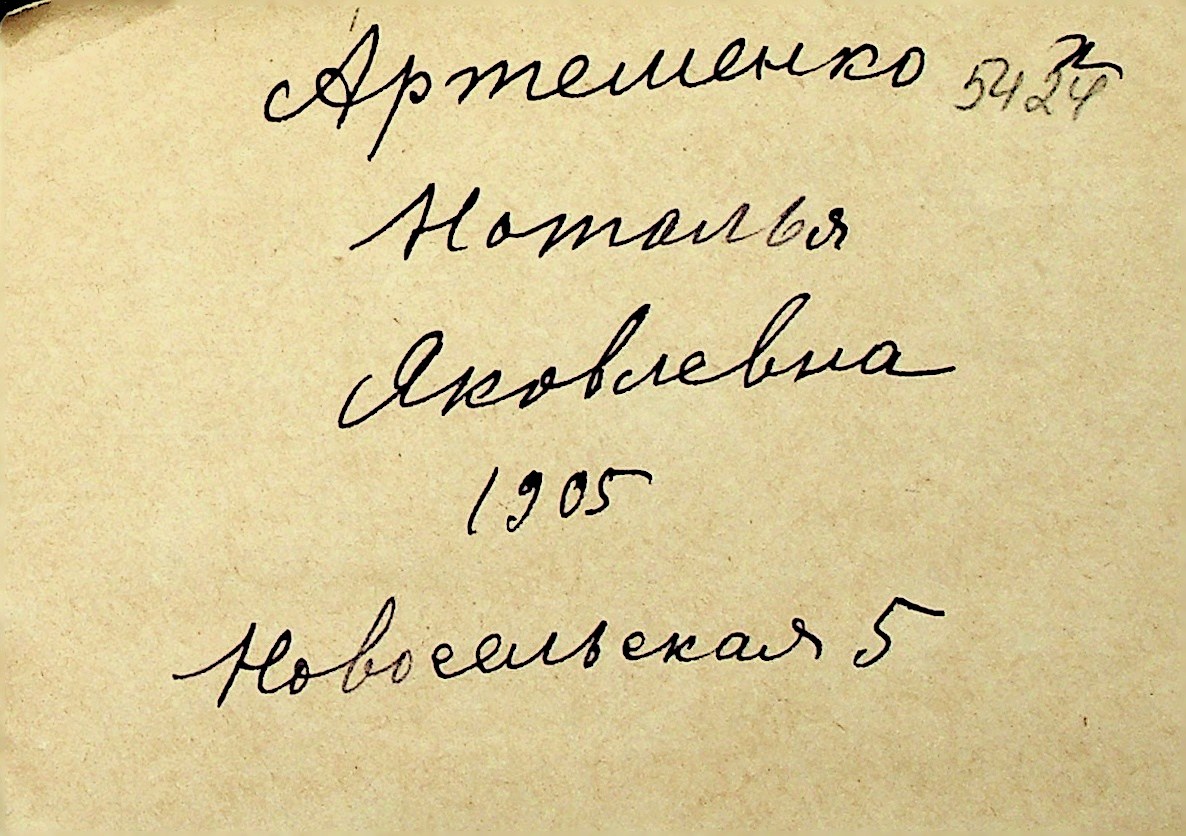 Артеменко 5424
Наталья
Яковлевна
1905
Новосельская 5